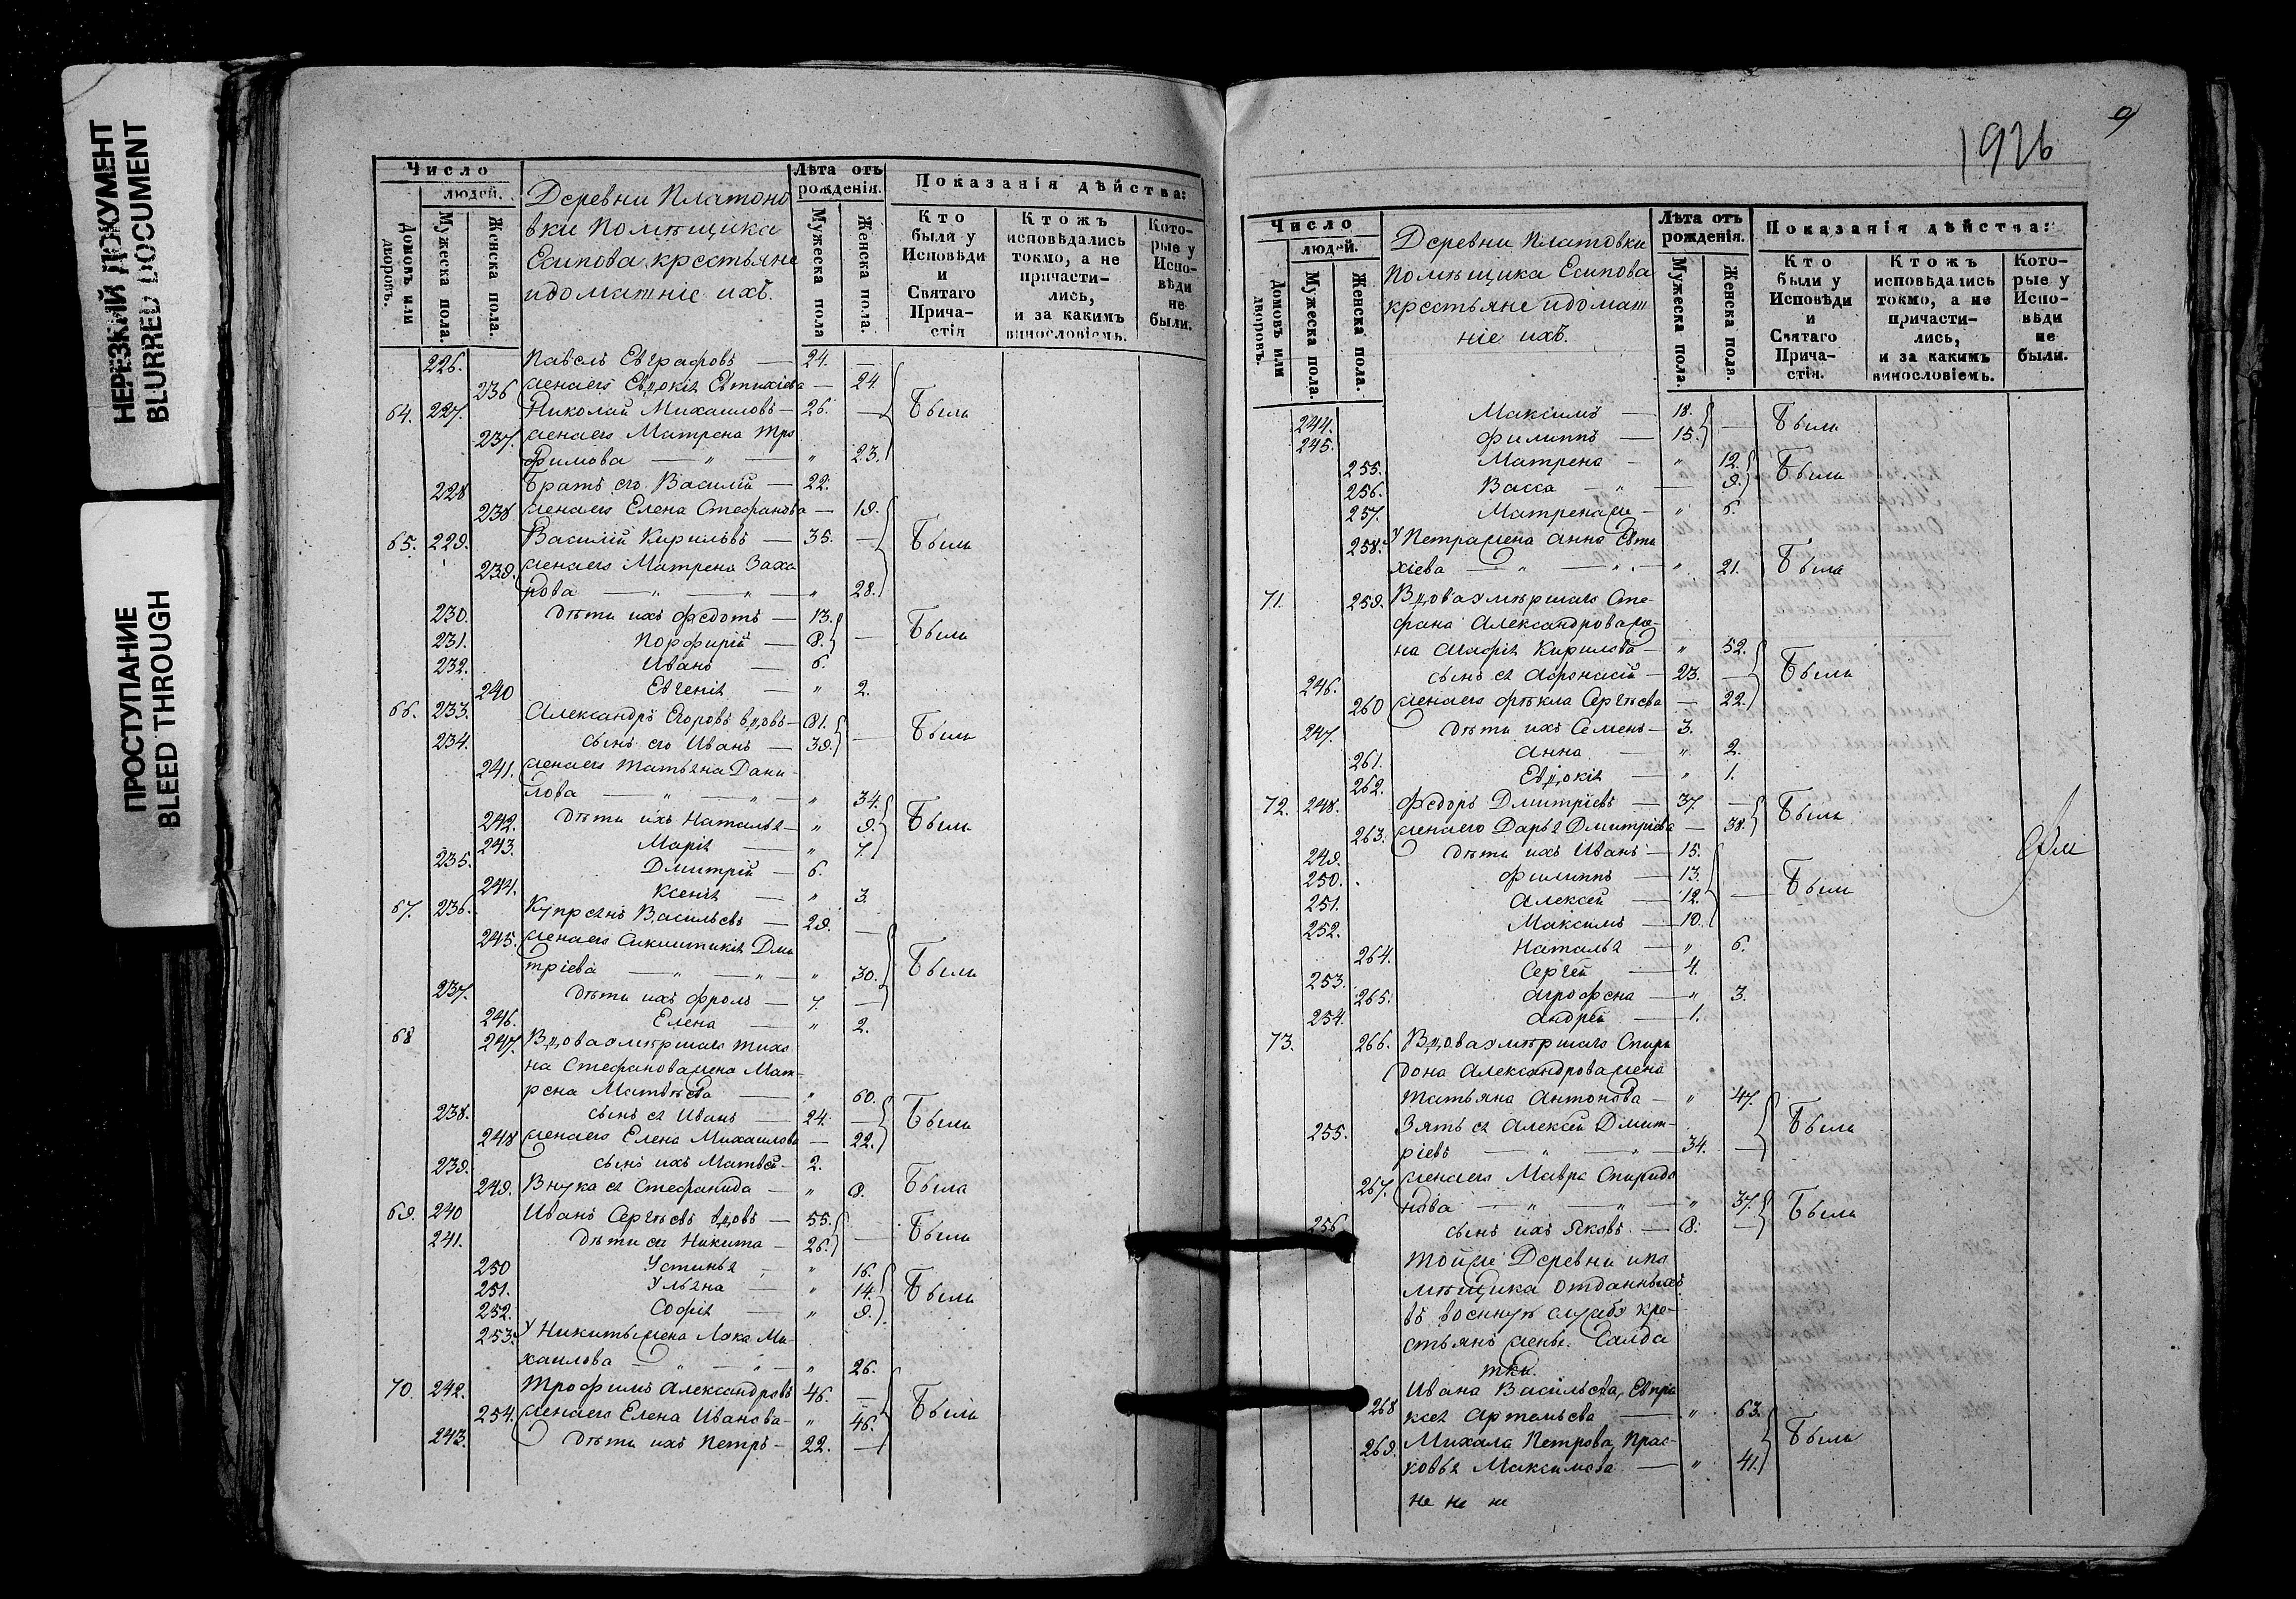 НЕРЕЗКИЙ ДОКУМЕНТ
BLURRED DOCUMENT
ПРОСТУПАНИЕ
BLEED THROUGH
Число
людей.
Домовъ или дворовъ.
Мужеска пола.
Женска пола.
Деревни Платоно
вки Помѣщика
Есипова крестьяне
идоматніе ихъ.
Лѣта отъ рожденія.
Мужеска пола
Женска пола.
Показанія дѣйства:
Кто были у Исповѣди и Святаго Прича-стія
Ктожъ исповѣдались токмо, а не причасти-лись, и за какимъ винословіемъ.
Кото-рые у Испо-вѣди не были.
226. Павелъ Евграфовъ — 24. —
236 женаего Евдокія Евтихіева — 24. Были
64. 227. Николай Михаиловъ — 26. —
237. женаего Матрена Тро
фимова — " — " 23.
228 Братъ его Василій — 22.
238 женаего Елена Стефанова — 19.
65. 229. Василій Кириловъ — 35. — Были
239. женаего Матрена Заха
рова — " — " — " 28.
230. Дѣти ихъ Федотъ — 13.
231. Порфирій — 8. — Были
232. Иванъ — 6.
240 Евгенія — " 2.
66. 233. Александръ Егоровъ вдовъ — 81.
234. сынъ его Иванъ — 39. — Были
241. женаего Татьяна Дани
лова — " — " — " 34.
242. Дѣти ихъ Наталья — " 9. Были
243. Марія — " 7.
235. Дмитрій — 6.
244. Ксенія — " 3.
67. 236. Купреянъ Васильевъ — 29. —
245. женаего Сикллитикія Дми
тріева — " — " — " 30. Были
237. Дѣти ихъ Фролъ — 7. —
246. Елена — " 2.
68 247. Вдоваумѣршаго Тихо
на Стефановажена Мат-
рена Матвѣева — " 60.
238. сынъ ея Иванъ — 24. — Были
248 женаего Елена Михаилова — 22.
239. сынъ ихъ Матвей — 2.
249. Внука ея Стефанида — " 8. Была
69. 240 Иванъ Сергѣевъ вдовъ — 55. — Были
241. Дѣти ея Никита — 26.
250 Устинья — " 16.
251. Ульяна — " 14. Были
252. Софія — " 9.
253. У Никитыжена Лока Ми-
хаилова — " — " — " 26.
70. 242. Трофимъ Александровъ 46. —
254. женаего Елена Иванова — " 46. Были
243. Дѣти ихъ Петръ — 22. —
1926
9
Число
людей.
Домовъ или дворовъ.
Мужеска пола.
Женска пола.
Деревни Платовки
Помѣщика Есипова
крестьяне идомат
ніе ихъ.
Лѣта отъ рожденія.
Мужеска пола.
Женска пола.
Показанія дѣйства:
Кто были у Исповѣди и Святаго Прича-стія.
Ктожъ исповѣдались токмо, а не причасти-лись, и за какимъ винословіемъ.
Кото-рые у Испо-вѣди не были.
244. Максимъ — 18. — Были
245. Филиппъ — 15.
255. Матрена — " 12. Были
256. Васса — " — 9.
257. Матренаже — " 6.
258. У Петражена Анна Евти
хіева — " — " — " 21. Была
71. 259. Вдоваумѣршаго Сте-
фана Александроваже-
на Агафія Кирилова — " 52.
246. сынъ ея Афонасій — 23. — Были
260 женаего Фѣкла Сергѣева — 22.
247. Дѣти ихъ Семенъ — 3.
261. Анна — " 2.
262. Евдокія — " 1.
72. 248. Федоръ Дмитріевъ — 37 — Были
263. женаего Дарья Дмитріева — 38.
249. Дѣти ихъ Иванъ — 15.
250. Филиппъ — 13.
251. Алексей — 12. — Были
252. Максимъ — 10.
264. Наталья — " 6.
253. Сергей — 4.
265. Агрофена — " 3.
254. Андрей — 1.
73. 266. Вдоваумѣршаго Спири
дона Александроважена
Татьяна Антонова — " 47.
255. Зять ея Алексей Дмит-
ріевъ — " — " — 34. — Были
267. женаего Мавра Спиридо
нова — " — " — " 37.
256 сынъ ихъ Яковъ — 8. — Были
Тойже Деревни ипо
мѣщика отданныхъ
въ военнуѣ службу кре-
стьянъ жены Салда
тки.
268 Ивана Васильева, Евпра
ксея Артемьева — " 63.
269. Михаила Петрова, Прас-
ковья Максимова — " 41. Были